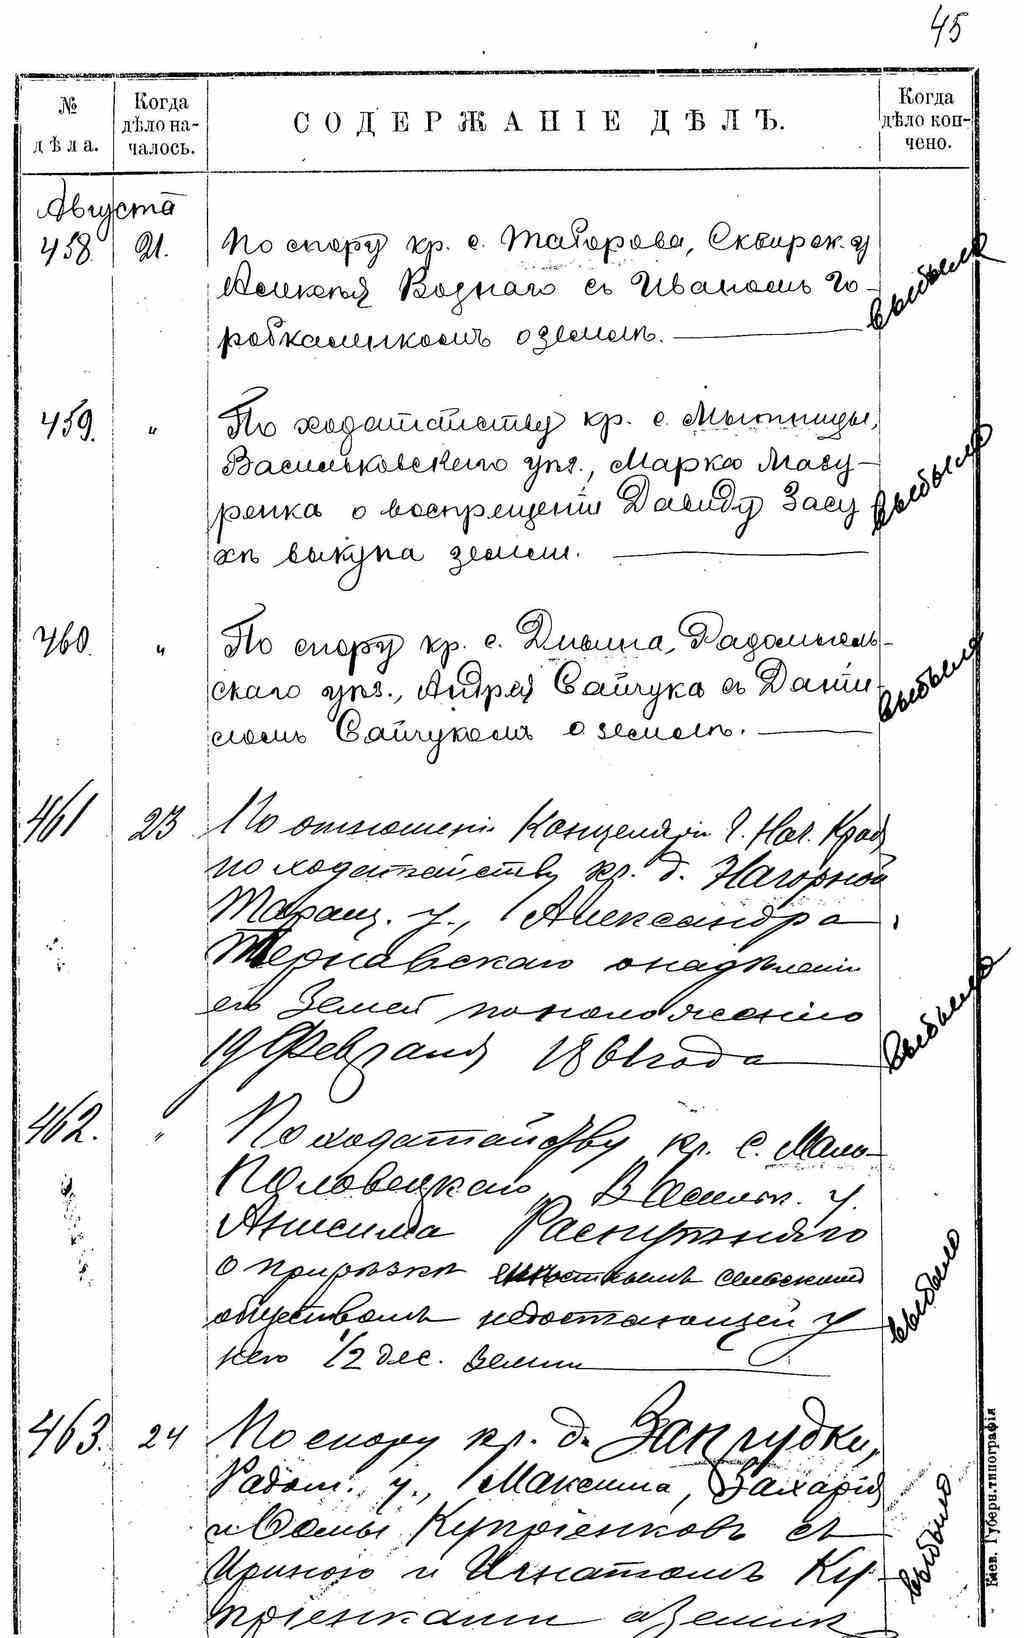 45
№ дѣла.
Когда дѣло началось.
СОДЕРЖАНІЕ ДѢЛЪ.
Когда дѣло кончено.
Августа
458. 21. По спору кр. с. Таборова, Сквирск. у
Алексѣя Вознаго съ Иваномъ Го-
робкаленкомъ о землѣ. выбыло
459. " По ходатайству кр. с. Мытницы,
Васильковскаго уѣз., Марка Мазу-
ренка о воспрещеніи Давиду Засу
хѣ выкупа земли. выбыло
460. " По спору кр. с. Радомысль-
скаго уѣз., Андрея Сайчука съ Дани-
ломъ Сайчукомъ о землѣ. выбыло
461 23 По отношенію Канцеляріи Г. Нач. Края
по ходатайству кр. д. Нагорной
Таращ. у., Александра
Тернавскаго о надѣленіи
его землей по положенію
19 Февраля 1861 года выбыло
462. " По ходатайству кр. с. Мало-
Половецкаго, Васильк. у.
Анисима Распутняго
о прирѣзкѣ сельскимъ
обществомъ недостающей у
него 1/2 дес. земли выбыло
463. 24 По спору кр. д. Запрудки,
Радом. у., Максима, Захарія
и Ѳомы Купріенковъ съ
Ириною и Игнатомъ Ку-
пріенками о землѣ выбыло
Кіев. Губерн. типографія